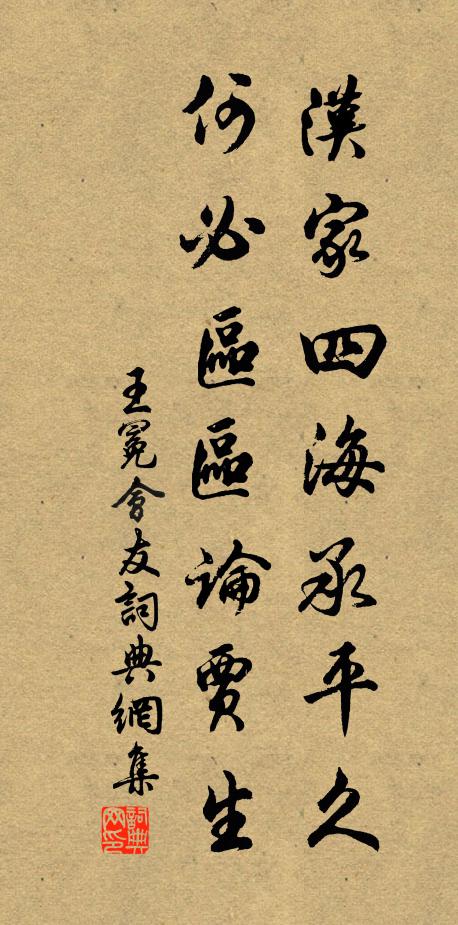 漢家四海承平久
何必區區論賈生
王冕會友詞典網集
詞典網印